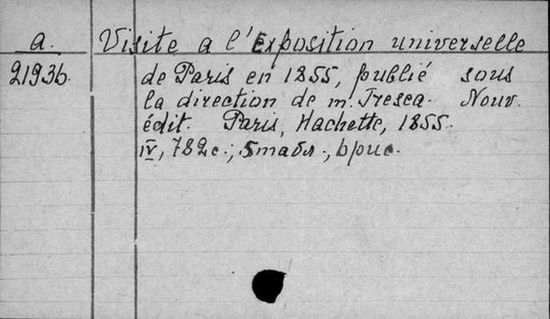 a. Visite a l'Exposition universelle
21936. de Paris en 1855, publié sous
la direction de m. Tresca. Nouv.
édit. Paris, Hachette, 1855.
IV, 782c.; 5 табл., 6 рис.